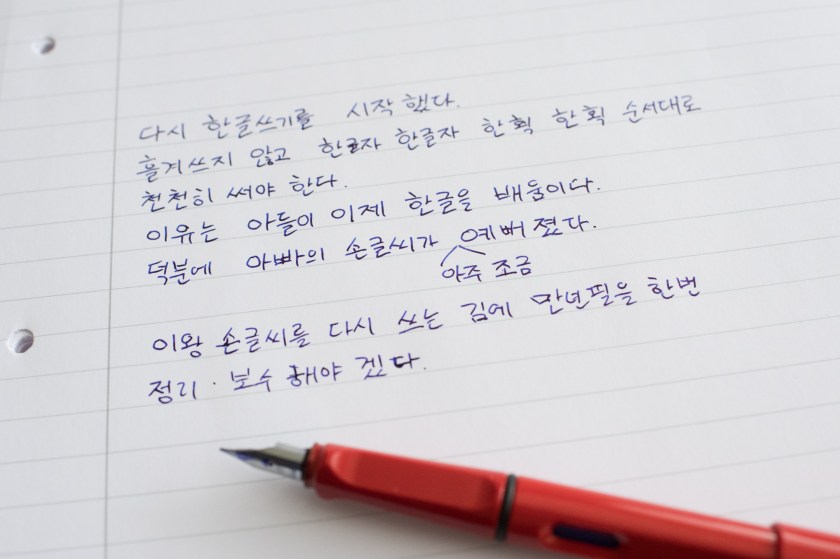 다시 한글쓰기를 시작 했다.
흘겨쓰지 않고 한글자 한글자 한획 한획 순서대로
천천히 써야 한다.
이유는 아들이 이제 한글을 배움이다.
덕분에 아빠의 손글씨가 예뻐졌다.
아주 조금
이왕 손글씨를 다시 쓰는 김에 만년필을 한번
정리·보수 해야 겠다.